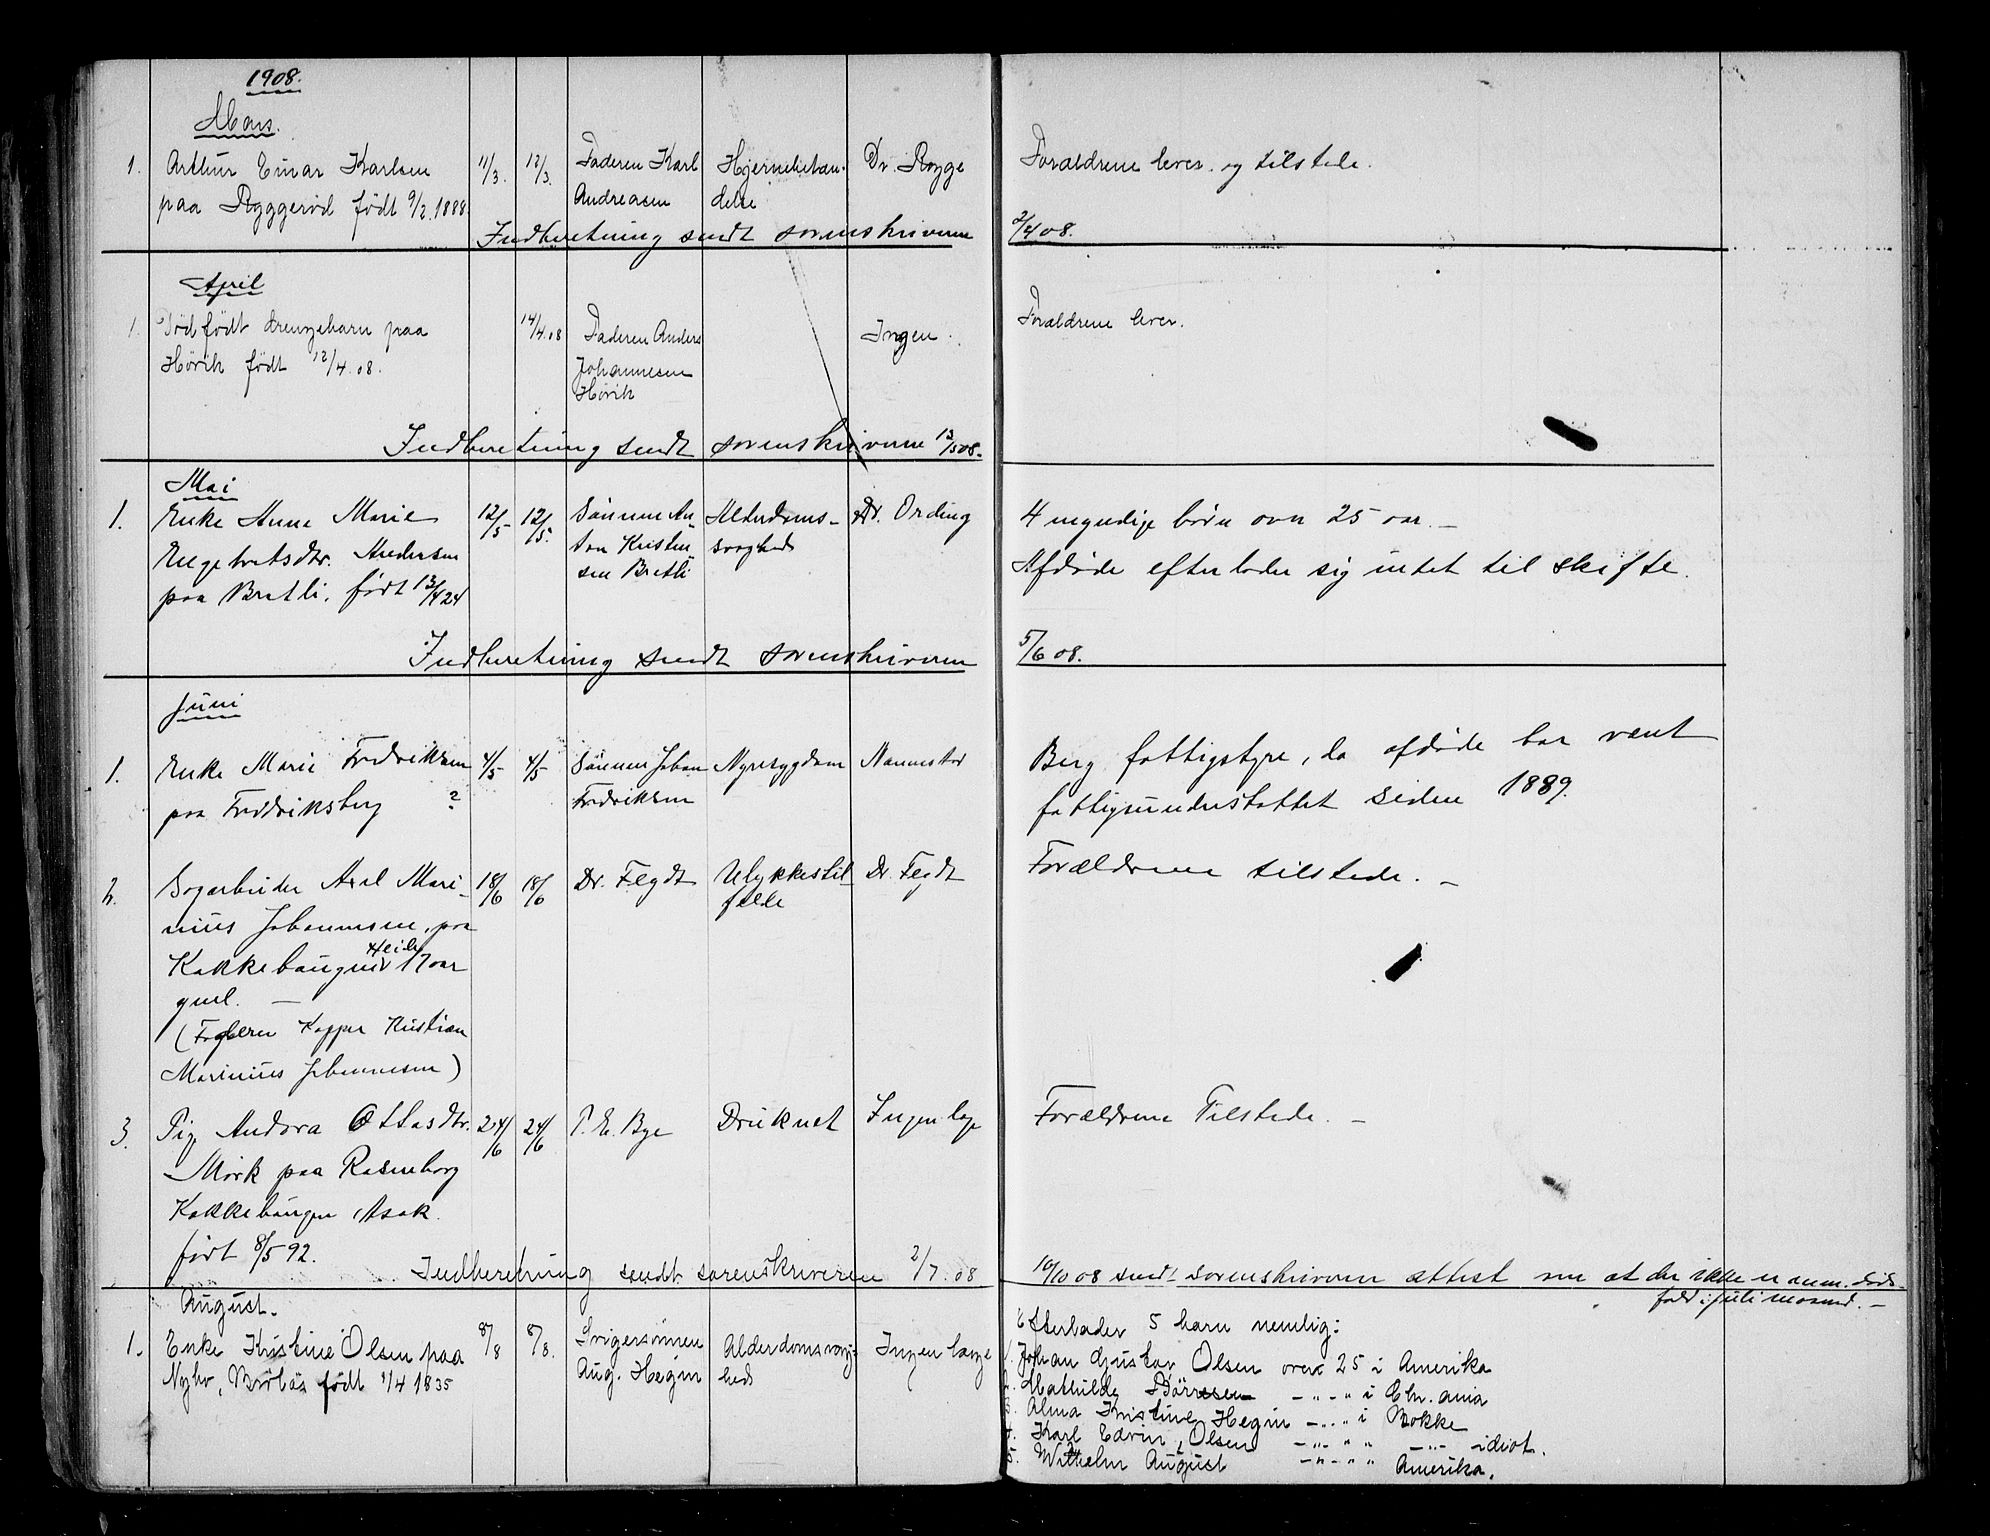 1908.
Mars.
1. Arthur Einar Karlsen 11/3. 12/3. Faderen Karl Hjernebetæn- Dr. Rygge Forældrene lever og tilstede.
paa Ryggerød født 9/2.1888. Andreasen delse
Indberetning sendt sorenskriveren 2/4 08.
April
1. Dødfødt drengebarn paa 14/4.08 Faderen Anders Ingen. Forældrene lever.
Hørik født 12/4.08. Johannesen
Hørik
Indberetning sendt sorenskriveren 13/5 08.
Mai
1. Enke Anne Marie 12/5 12/5. Sønnen An- Alderdoms- Dr. Ording 4 myndige børn over 25 aar. –
Engebretsdtr. Andersen ton Kristen- svaghed
paa Bratli, født 13/4 24 sen Bratli Afdøde efterlader sig intet til skifte.
Indberetning sendt sorenskriveren 5/6 08.
Juni
1. Enke Marie Fredriksen 4/5 4/5 Sønnen Johan Nyresygdom Berg fattigstyre, da afdøde har været
paa Fredriksberg ? Fredriksen fattigunderstøttet siden 1889.
2. Axel Mari- 18/6 18/6 Dr. Flydt Ulykkestil- Dr. Flydt Forældrene tilstede. –
nius Johannesen, paa fælde
Kakkehaugen 17 aar
gml. –
(Kristian
Marinius Johannesen)
3. Pig. Andora Ottosdtr. 24/6 24/6 P. E. Bye Druknet Ingen læge Forældrene Tilstede. –
Mørk paa Rosenborg
Kakkehaugen, Asak.
født 8/5 92.
Indberetning sendt sorenskriveren 2/7.08 10/10 08 sendt sorenskriveren attest om at der ikke er anm. døds-
fald i juli maaned. –
August.
1. Enke Kristine Olsen paa 8/8 8/8. Svigersønnen Alderdomsvag- Ingen læge Efterlader 5 barn nemlig:
Nyhv, født 1/4 1835 Aug. Hegin hed
1. Johan Gustav Olsen over 25 i Amerika
2. Mathilde – " – " i Chr.ania
3. Alma Kristine Hegin – " – " i Bokke
4. Karl Edvin Olsen – " – " " – " – idiot.
5. Wilhelm August – " – " " Amerika.